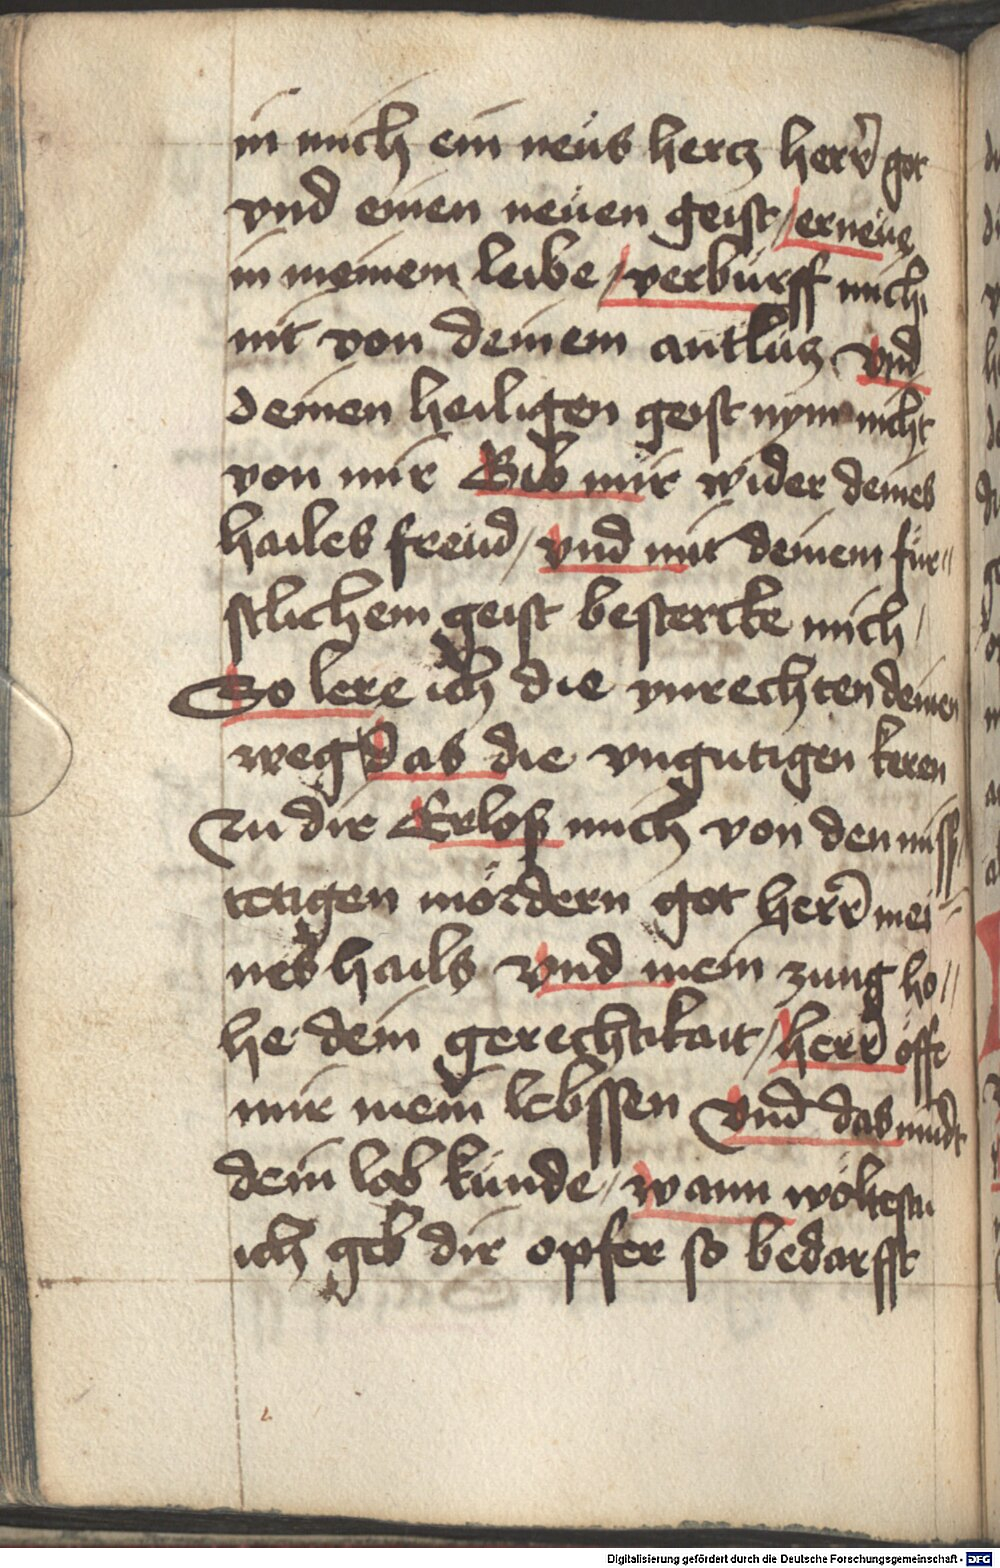 in mich ein neüs hercz herr̃ got
vnd einen neüen geist / erneüe
in meinem leibe / verbürff mich
nit von deinem antlücz vnd
deinen heiligen geist nym nicht
von mir Gib mir wider deines
hailes freüd / vnd mit deinem für〃
stlichem geist bestercke mich /
So lere ich die vnrechten deinen
weg Das die vngutigen keren
Zu dir Erloß mich von den miss/
tetigen mördern got herr̃ mei〃
nes hails vnd mein zung ho〃
he dein gerechtikait / herr̃ öfft
mir mein lebssen vnd das mindt
dein lob künde / wann wöltestu
ich geb dir opfer so bedarfft
Digitalisierung gefördert durch die Deutsche Forschungsgemeinschaft - DFG